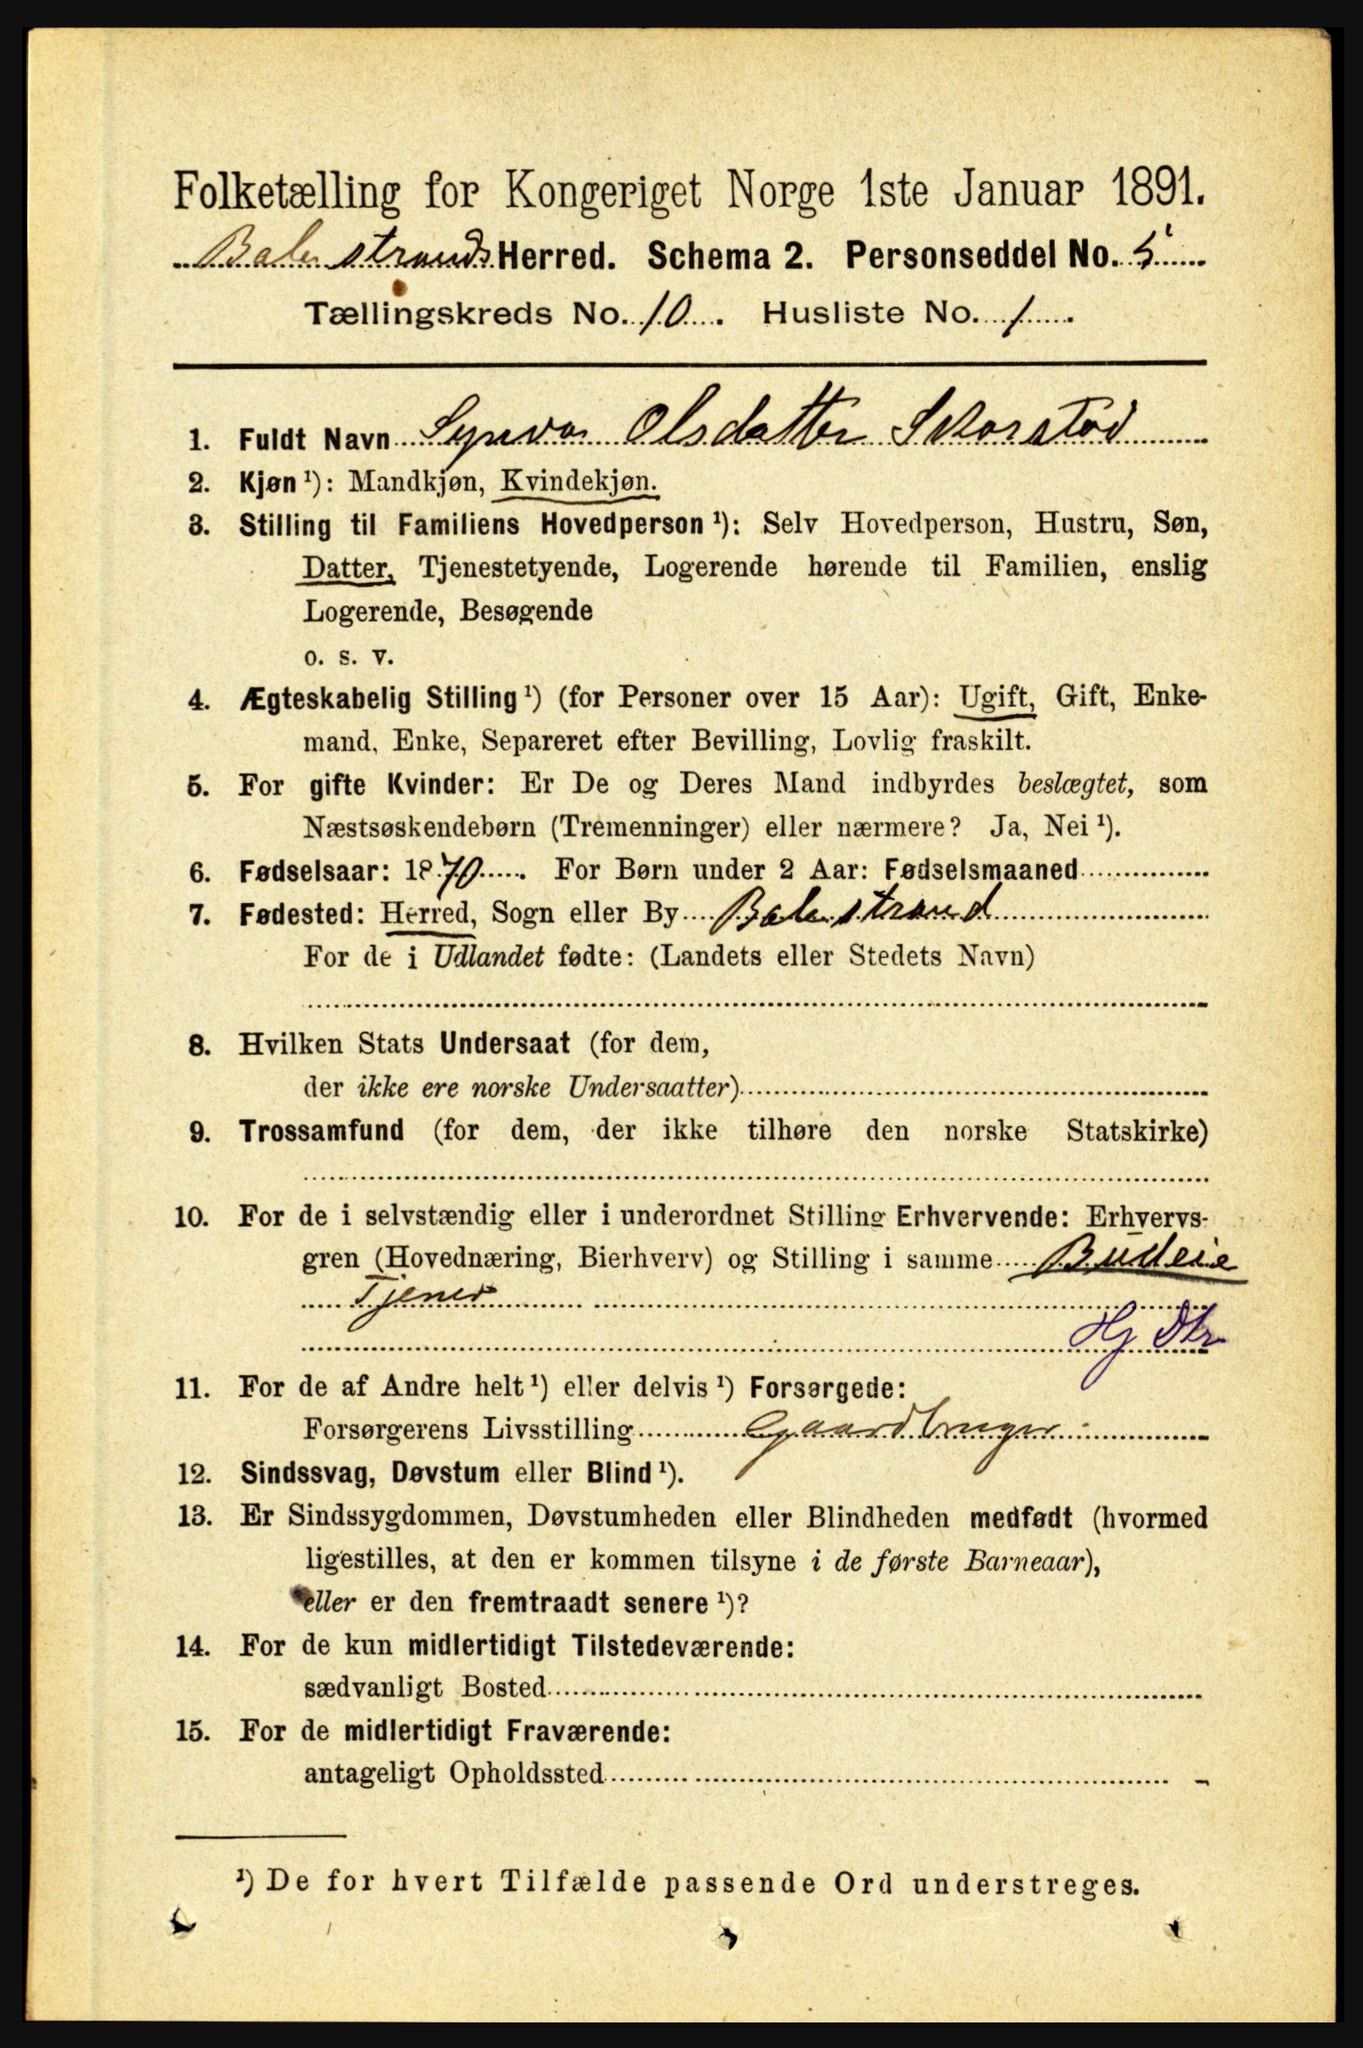 Folketælling for Kongeriget Norge 1ste Januar 1891.
Balestrands Herred. Schema 2. Personseddel No. 5
Tællingskreds No. 10. Husliste No. 1.
1. Fuldt Navn Synva Olsdatter
2. Kjøn ¹): Mandkjøn, Kvindekjøn.
3. Stilling til Familiens Hovedperson ¹): Selv Hovedperson, Hustru, Søn,
Datter, Tjenestetyende, Logerende hørende til Familien, enslig
Logerende, Besøgende
o. s. v.
4. Ægteskabelig Stilling ¹) (for Personer over 15 Aar): Ugift, Gift, Enke-
mand, Enke, Separeret efter Bevilling, Lovlig fraskilt.
5. For gifte Kvinder: Er De og Deres Mand indbyrdes beslægtet, som
Næstsøskendebørn (Tremenninger) eller nærmere? Ja, Nei ¹).
6. Fødselsaar: 1870. For Børn under 2 Aar: Fødselsmaaned
7. Fødested: Herred, Sogn eller By Balestrand
For de i Udlandet fødte: (Landets eller Stedets Navn)
8. Hvilken Stats Undersaat (for dem,
der ikke ere norske Undersaatter)
9. Trossamfund (for dem, der ikke tilhøre den norske Statskirke)
10. For de i selvstændig eller i underordnet Stilling Erhvervende: Erhvervs-
gren (Hovednæring, Bierhverv) og Stilling i samme Budeie
Tjener
Hj Dtr
11. For de af Andre helt ¹) eller delvis ¹) Forsørgede:
Forsørgerens Livsstilling Gaardbruger
12. Sindssvag, Døvstum eller Blind ¹).
13. Er Sindssygdommen, Døvstumheden eller Blindheden medfødt (hvormed
ligestilles, at den er kommen tilsyne i de første Barneaar),
eller er den fremtraadt senere ¹)?
14. For de kun midlertidigt Tilstedeværende:
sædvanligt Bosted
15. For de midlertidigt Fraværende:
antageligt Opholdssted
¹) De for hvert Tilfælde passende Ord understreges.